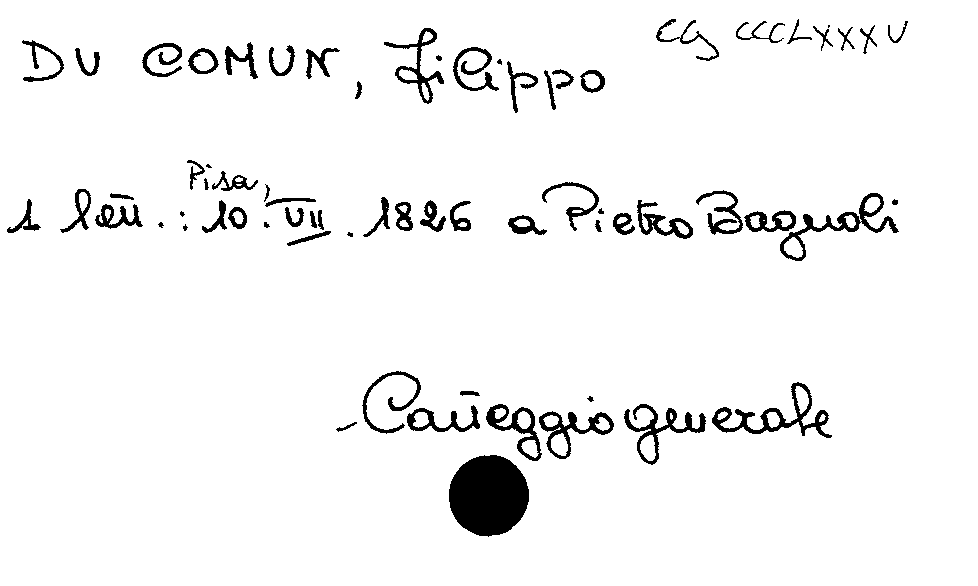 DU COMUN, Filippo CG CCCLXXXV
1 lett. : Pisa, 10. VII. 1826 a Pietro Bagnoli
Carteggio generale